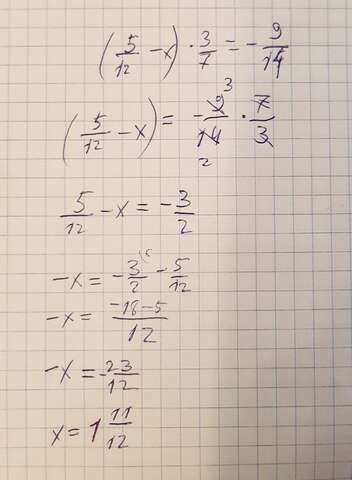 (5/12 - x) · 3/7 = - 9/14
(5/12 - x) = - 9/14 · 7/3 3 2
5/12 - x = - 3/2
-x = - 3/2 (6 - 5/12
-x = -18-5/12
-x = - 23/12
x = 1 11/12